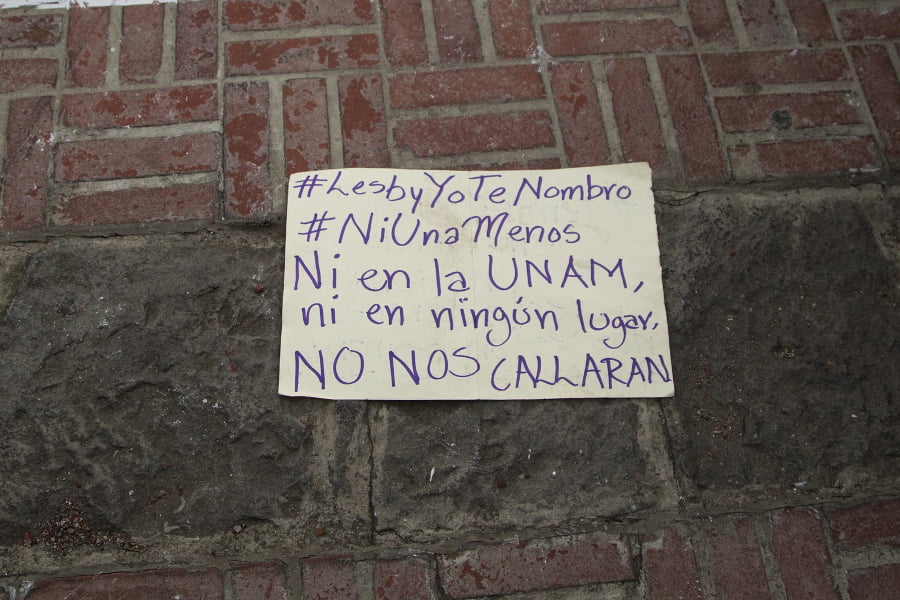 #LesbyYoTeNombro
#NiUnaMenos
Ni en la UNAM,
ni en ningún lugar.
NO NOS CALLARAN